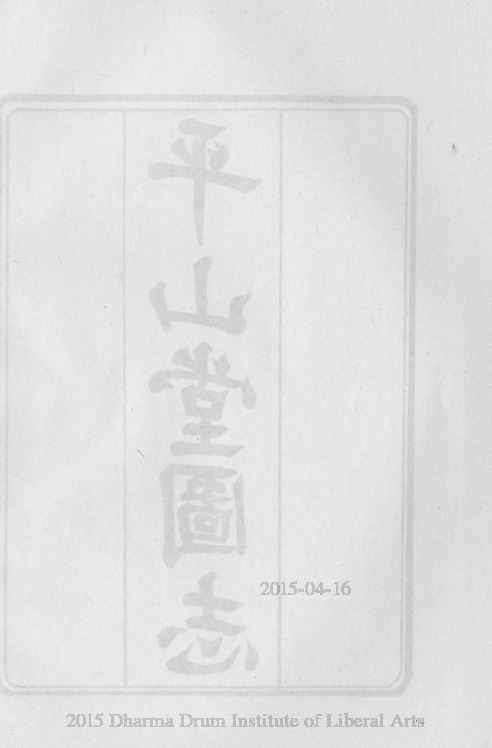 平山堂圖志
2015-04-16
2015 Dharma Drum Institute of Liberal Arts